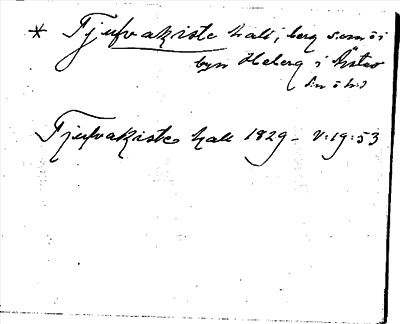 * Tjufvakiste hall, berg s.um ö i
byn Heberg i Åster
Tjufvakiste hall 1829 - V:19:53